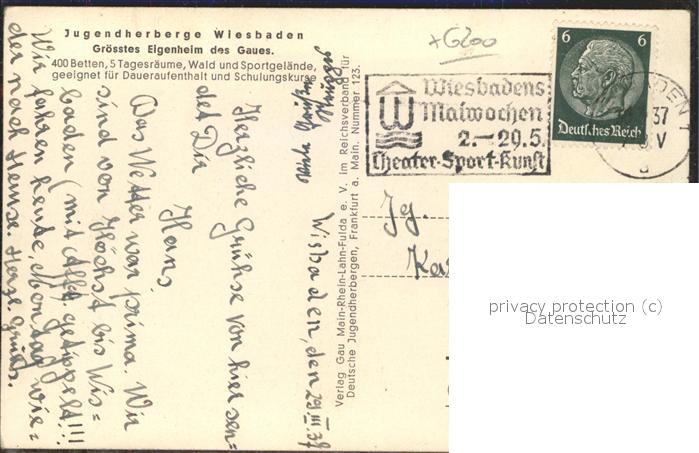 Jugendherberge Wiesbaden
Grösstes Eigenheim des Gaues.
400 Betten, 5 Tagesräume, Wald und Sportgelände,
geeignet für Daueraufenthalt und Schulungskurse
+6200
Wiesbadens
Maiwochen
2.–29.5.
Theater-Sport-Kunst
6 6
Deutsches Reich
37
V
Verlag Gau Main-Rhein-Lahn-Fulda e. V. im Reichsverband für
Deutsche Jugendherbergen, Frankfurt a. Main. Nummer 123.
Wisbaden, den 29 III. 37
Herzliche Grühse von hier sen=
det Dir
Hans,
Das Wetter war prima. Wir
sind von Höchst bis Wis=
baden (mit Aff) getippelt!!!
Wir fahren heute, Montag wie=
der nach Hause. Herz. Grüße.
Jg.
privacy protection (c)
Datenschutz